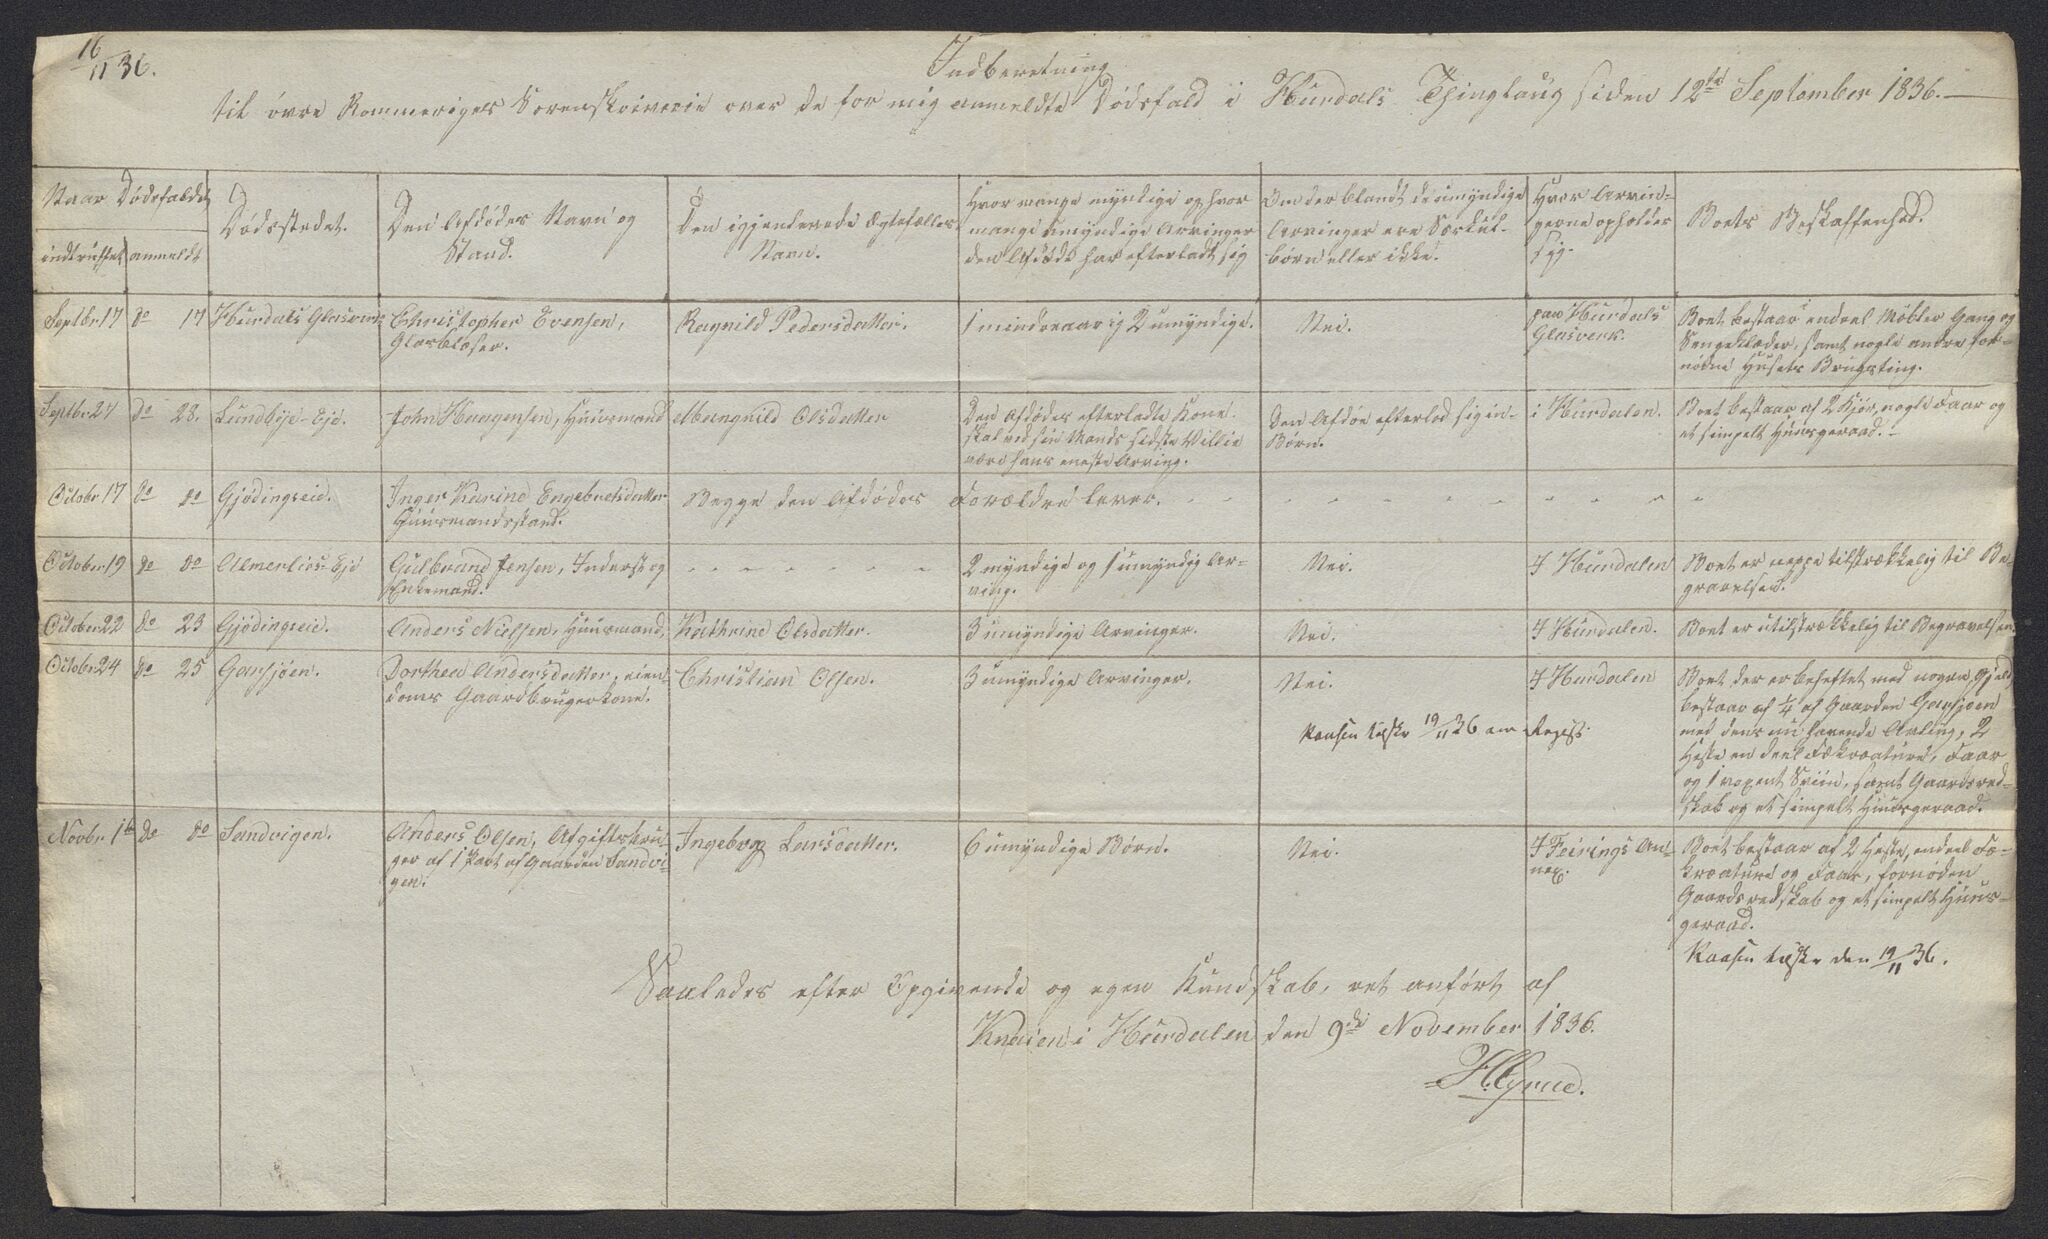 16/11 36.
Indberetning
til øvre Rommeriges Sorenskriverie over de for mig anmeldte Dødsfald i Hurdals Thinglaug siden 12te September 1836.
Naar Dødsfaldet
indtruffet
anmeldt
Dødsstedet.
Den Afdødes Navn og
Stand.
Den igjenlevende Ægtefælles
Navn.
Hvor mange myndige og hvor
mange umyndige Arvinger
den Afdøde har efterladt sig
Om der blandt de umyndige
Arvinger ere Særkul-
børn eller ikke.
Hvor Arvin-
gerne opholder
sig.
Boets Beskaffenhed.
Septbr. 17
do 17
Hurdals Glasværk
Christopher Evensen,
Glasblæser.
Ragnild Pedersdatter.
1 mindreaarig 2 umyndige.
Nei.
paa Hurdals
Glasverk.
Boet bestaar endeel Møbler Gang og
Sengeklæder, samt nogle andre for-
nødne Husets Brugsting.
Septbr. 27
do 28.
Lundbye-Eje.
John Haagensen, Huusmand
Mangnild Olsdatter
Den Afdødes efterladte Kone
skal ved sin Mands sidste Villie
være hans eneste Arving.
Den Afdøe efterlod sig in-
Børn.
i Hurdalen.
Boet bestaar af 2 Kjør, nogle Faar og
et simpelt Huusgeraad.
Octobr 17
do do
Gjødingseie.
Inger Karine Engebretsdatter
Huusmandsstand.
Begge den Afdødes Forældre lever.
October 19
do do
Almerlies-Eje
Gulbrand Jensen, Inderst og
Enkemand.
2 myndige og 1 umyndig Ar-
ving.
Nei.
I Hurdalen
Boet er neppe tilstrækkelig til Be-
gravelsen.
October 22
do 23
Gjødingseie.
Anders Nielsen, Huusmand,
Kathrine Olsdatter.
3 umyndige Arvinger.
Nei.
I Hurdalen.
Boet er utilstrækkelig til Begravelsen.
Octobr 24
do 25
Garsjøen.
Dorthea Andersdatter, eien-
doms Gaardbrugerkone.
Christian Olsen.
3 umyndige Arvinger.
Nei.
I Hurdalen
Boet der er beheftet med nogen Gjeld
bestaar af 1/4 af Gaarden Garsjøen
med dens nu havende Avling, 2
Heste en deel Fækreature, Faar
og 1 voxent Sviin, samt Gaardsred-
skab og et simpelt Huusgeraad.
19/11 36 om Regist.
Novbr. 1te
do do
Sandvigen.
Anders Olsen, Afgiftsbru-
ger af 1 Part af Gaarden Sandvi-
gen.
Ingeborg Larsdatter.
6 umyndige Børn.
Nei.
I Feirings An-
nex.
Boet bestaar af 2 Heste, endeel Fæ-
kreature og Faar, fornøden
Gaardsredskab og et simpelt Huus-
geraad.
den 19/11 36.
Saaledes efter Opgivende og egen Kundskab, ret anført af
Knaien i Hurdalen den 9de November 1836.